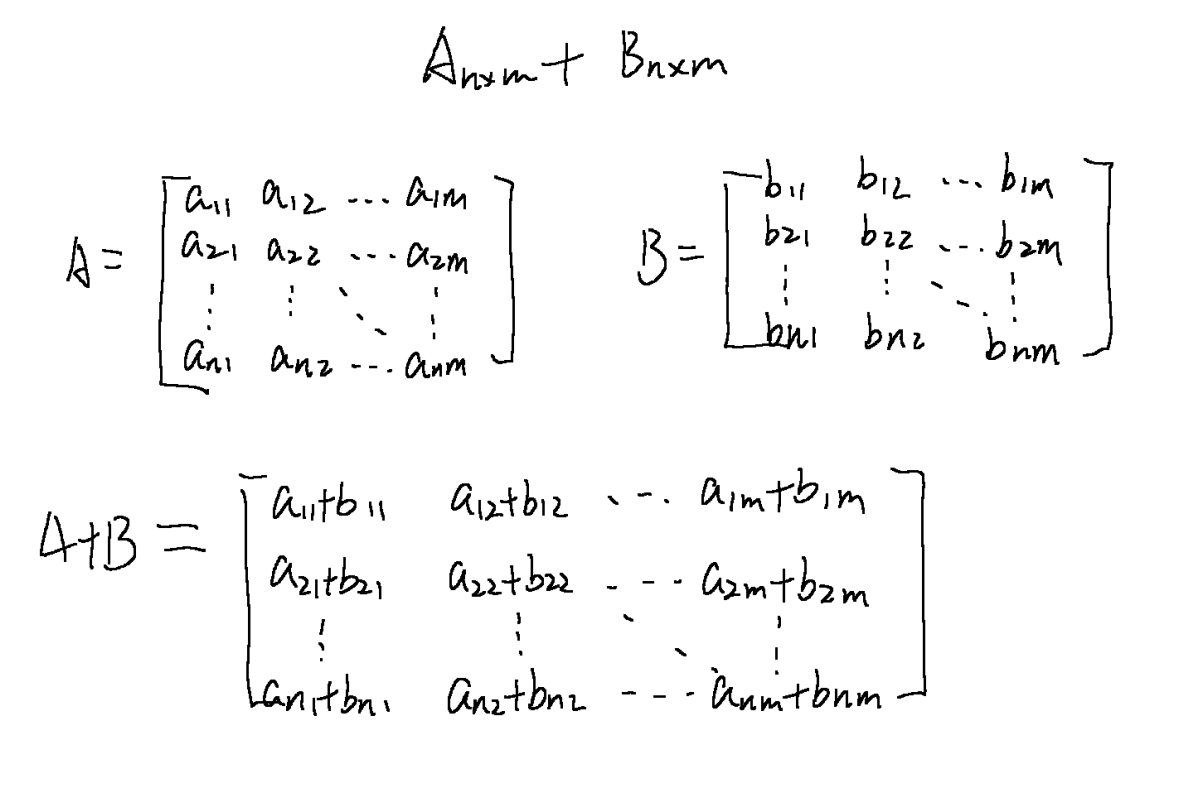 Aₙₓₘ + Bₙₓₘ
A = [a₁₁ a₁₂ ... a₁ₘ
a₂₁ a₂₂ ... a₂ₘ
⋮ ⋮ ⋱ ⋮
aₙ₁ aₙ₂ ... aₙₘ]
B = [b₁₁ b₁₂ ... b₁ₘ
b₂₁ b₂₂ ... b₂ₘ
⋮ ⋮ ⋱ ⋮
bₙ₁ bₙ₂ bₙₘ]
A+B = [a₁₁+b₁₁ a₁₂+b₁₂ ... a₁ₘ+b₁ₘ
a₂₁+b₂₁ a₂₂+b₂₂ ... a₂ₘ+b₂ₘ
⋮ ⋮ ⋱ ⋮
aₙ₁+bₙ₁ aₙ₂+bₙ₂ ... aₙₘ+bₙₘ]